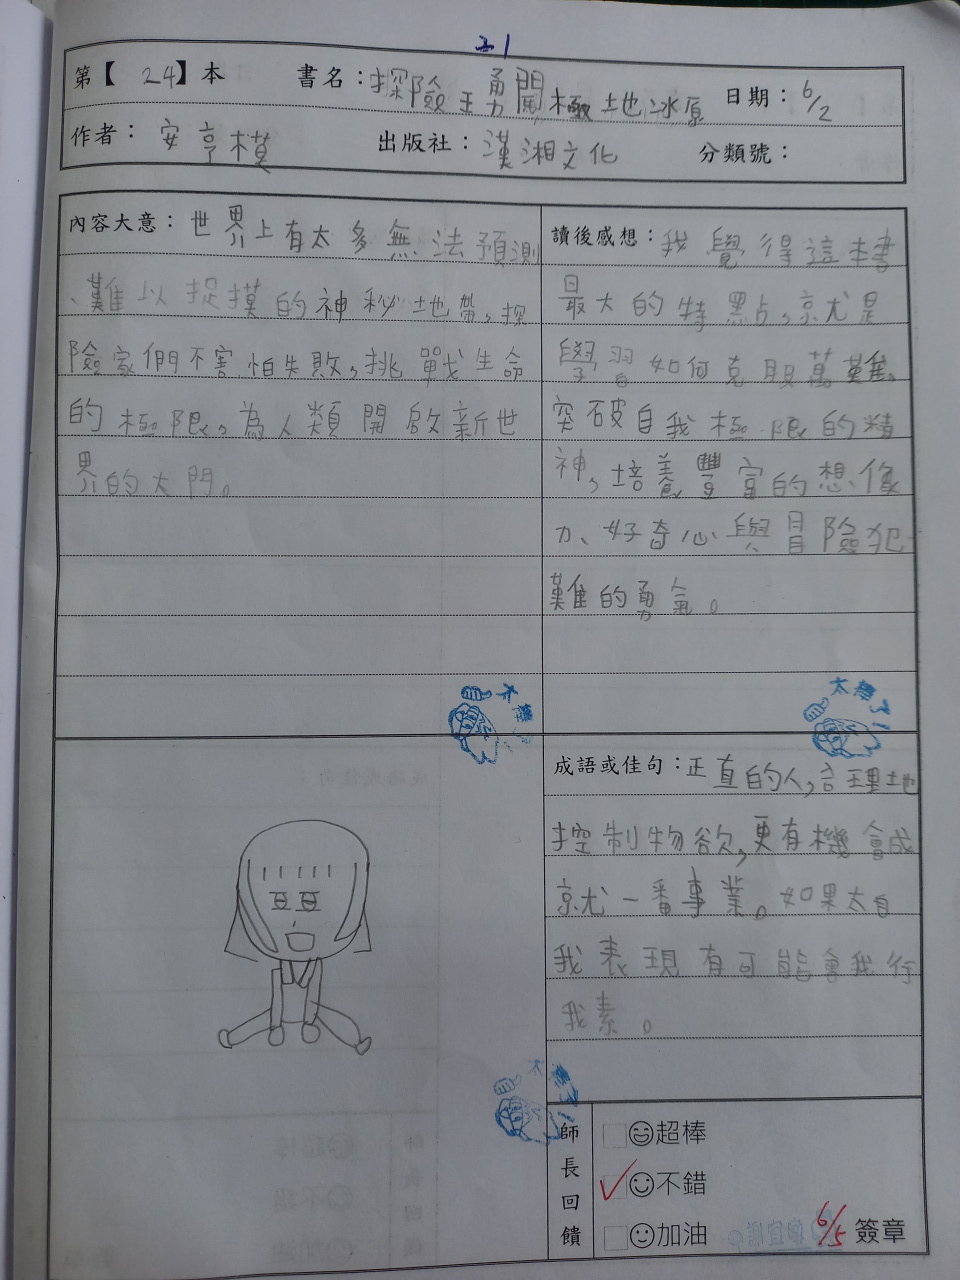 21
第【 24】本 書名：探險王勇闖極地冰原 日期：6/2
作者：安亨模 出版社：漢湘文化 分類號：
內容大意：世界上有太多無法預測
、難以捉摸的神秘地帶，探
險家們不害怕失敗，挑戰生命
的極限，為人類開啟新世
界的大門。
讀後感想：我覺得這本書
最大的特點，就是
學習如何克服萬難。
突破自我極限的精
神，培養豐富的想像
力、好奇心與冒險犯
難的勇氣。
太棒
太棒了！
成語或佳句：正直的人，合理地
控制物欲，更有機會成
就一番事業。如果太自
我表現有可能會我行
我素。
太棒了！
師長回饋
超棒
不錯
加油 6/5 簽章